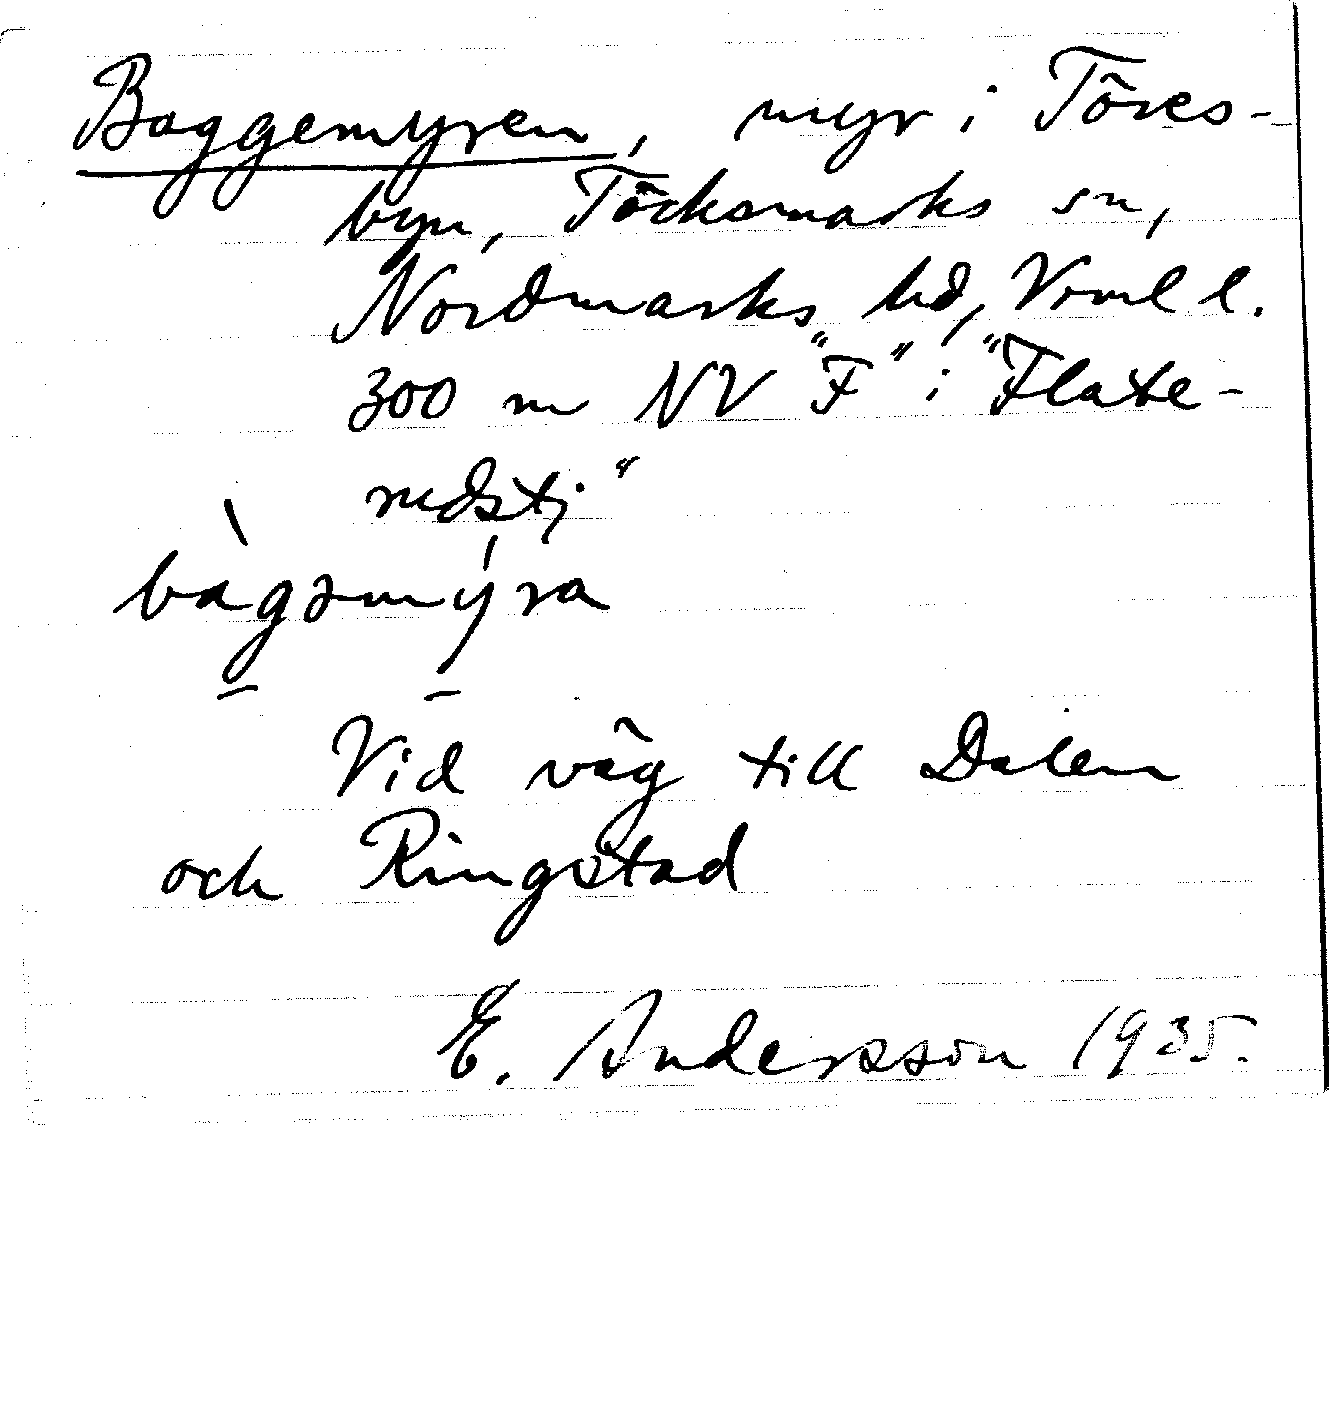 Baggemyren, myr i Töres-
byn, Töcksmarks sn,
Nordmarks hd, Vrml l.
300 m NV "F" i "Flate-
rudstj"
bàgəmýra
Vid väg till Dalen
och Ringstad
E. Andersson 1935.